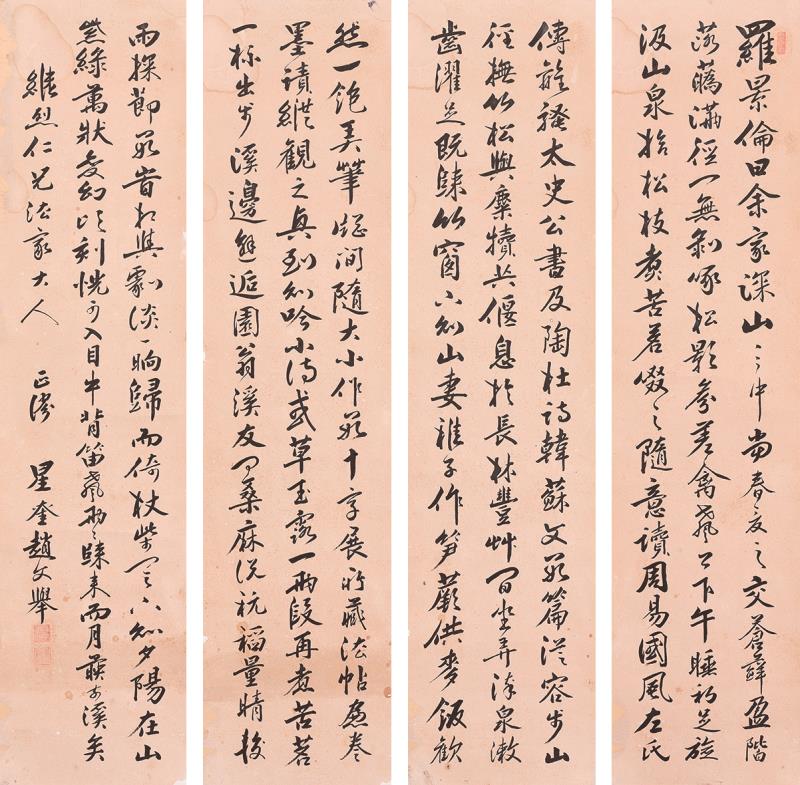 羅景倫曰余家深山之中當春夏之交蒼蘚盈階
落蘤滿徑門無剝啄松影參差禽聲上下午睡初足旋
汲山泉拾松枝煮苦茗啜之隨意讀周易國風左氏
傳離騷太史公書及陶杜詩韓蘇文數篇從容步山
徑撫竹松與麋犢共偃息於長林豐艸間坐弄流泉漱
齒濯足既歸竹窗下則山妻稚子作筍蕨供麥飯歡
然一飽弄筆窗間隨大小作數十字展所藏法帖畫卷
墨蹟縱觀之興到則吟小詩或草玉露一兩段再煮苦茗
一杯出步溪邊邂逅園翁溪友問桑麻說秔稻量晴校
雨探節數時相與劇談一晌歸而倚杖柴門下則夕陽在山
紫綠萬狀變幻頃刻恍可入目牛背笛聲兩兩歸來而月前溪矣
維烈仁兄法家大人 正 星奎趙文舉